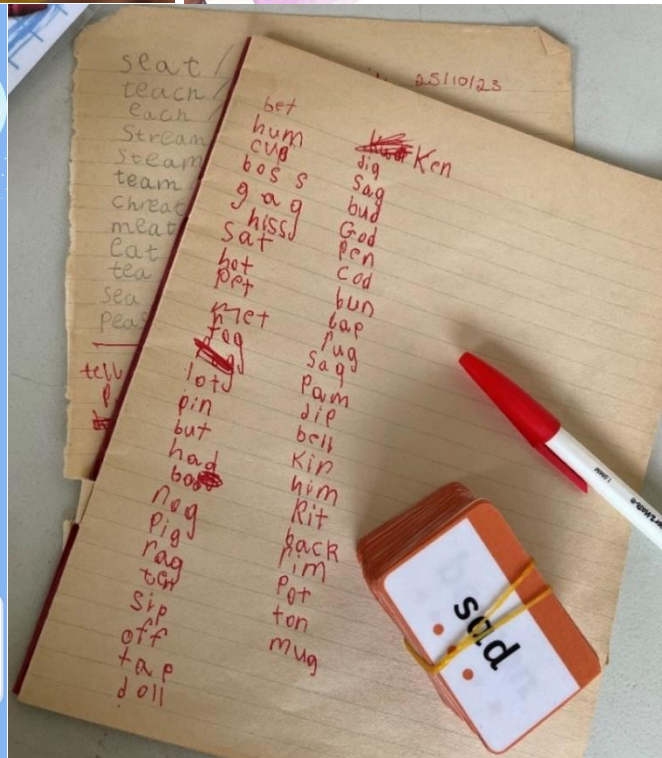 seat /
teach /
each /
Stream
Steam
team
chreat
meat
eat
tea
sea
peas
tell
25/10/23
bet
hum
cup
boss
gag
hiss
sat
hot
pet
met
fog
lot
pin
but
had
nog
pig
rag
ten
sip
off
tap
doll
Ken
dig
sag
bud
God
pen
cod
bun
lap
rug
sag
pam
dip
bell
kin
him
kit
back
rim
pot
ton
mug
sad